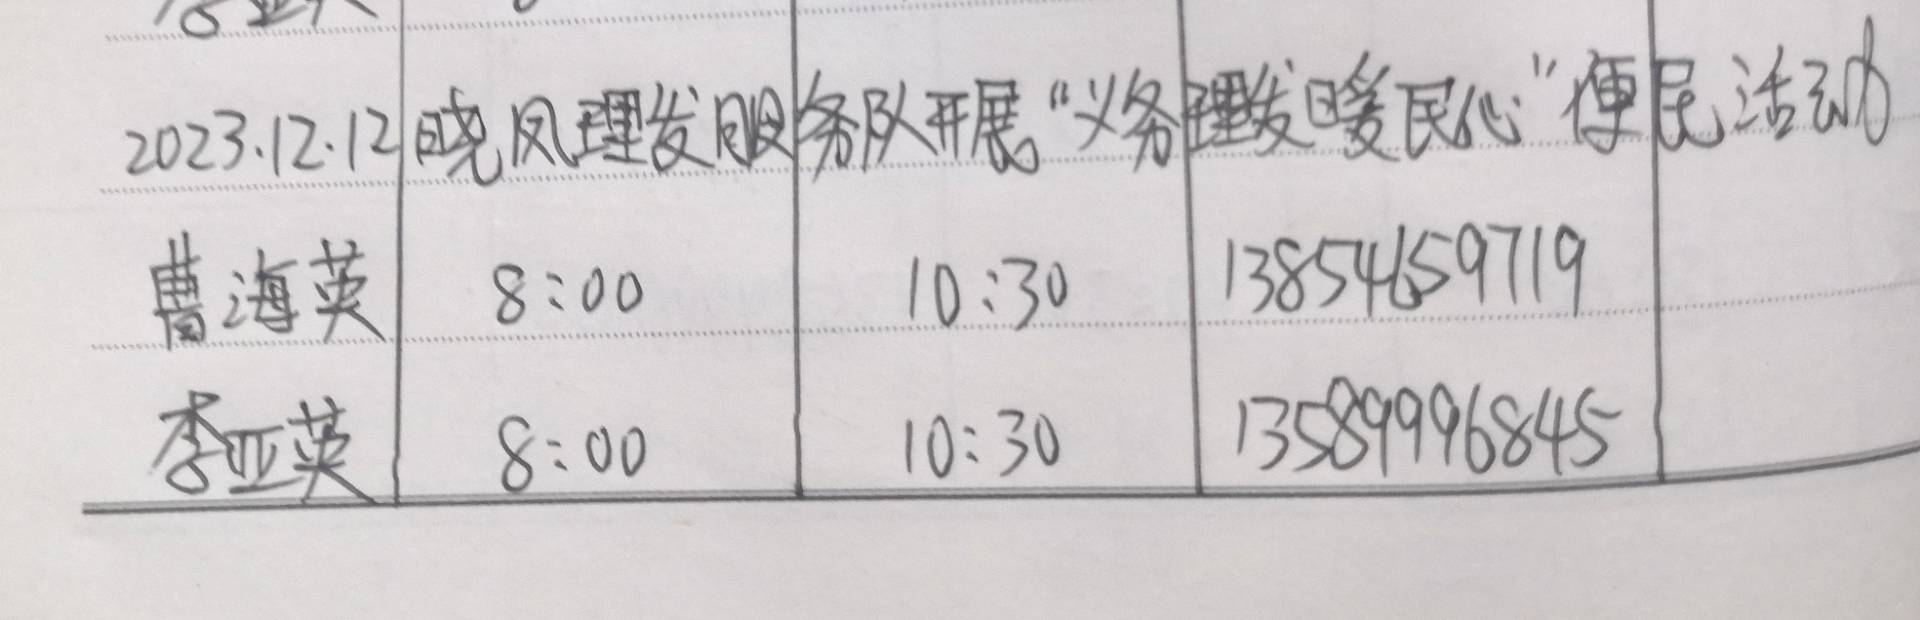 2023.12.12 晓凤理发服务队开展“义务理发暖民心”便民活动
曹海英 8:00 10:30 13854659719
李亚英 8:00 10:30 13589996845